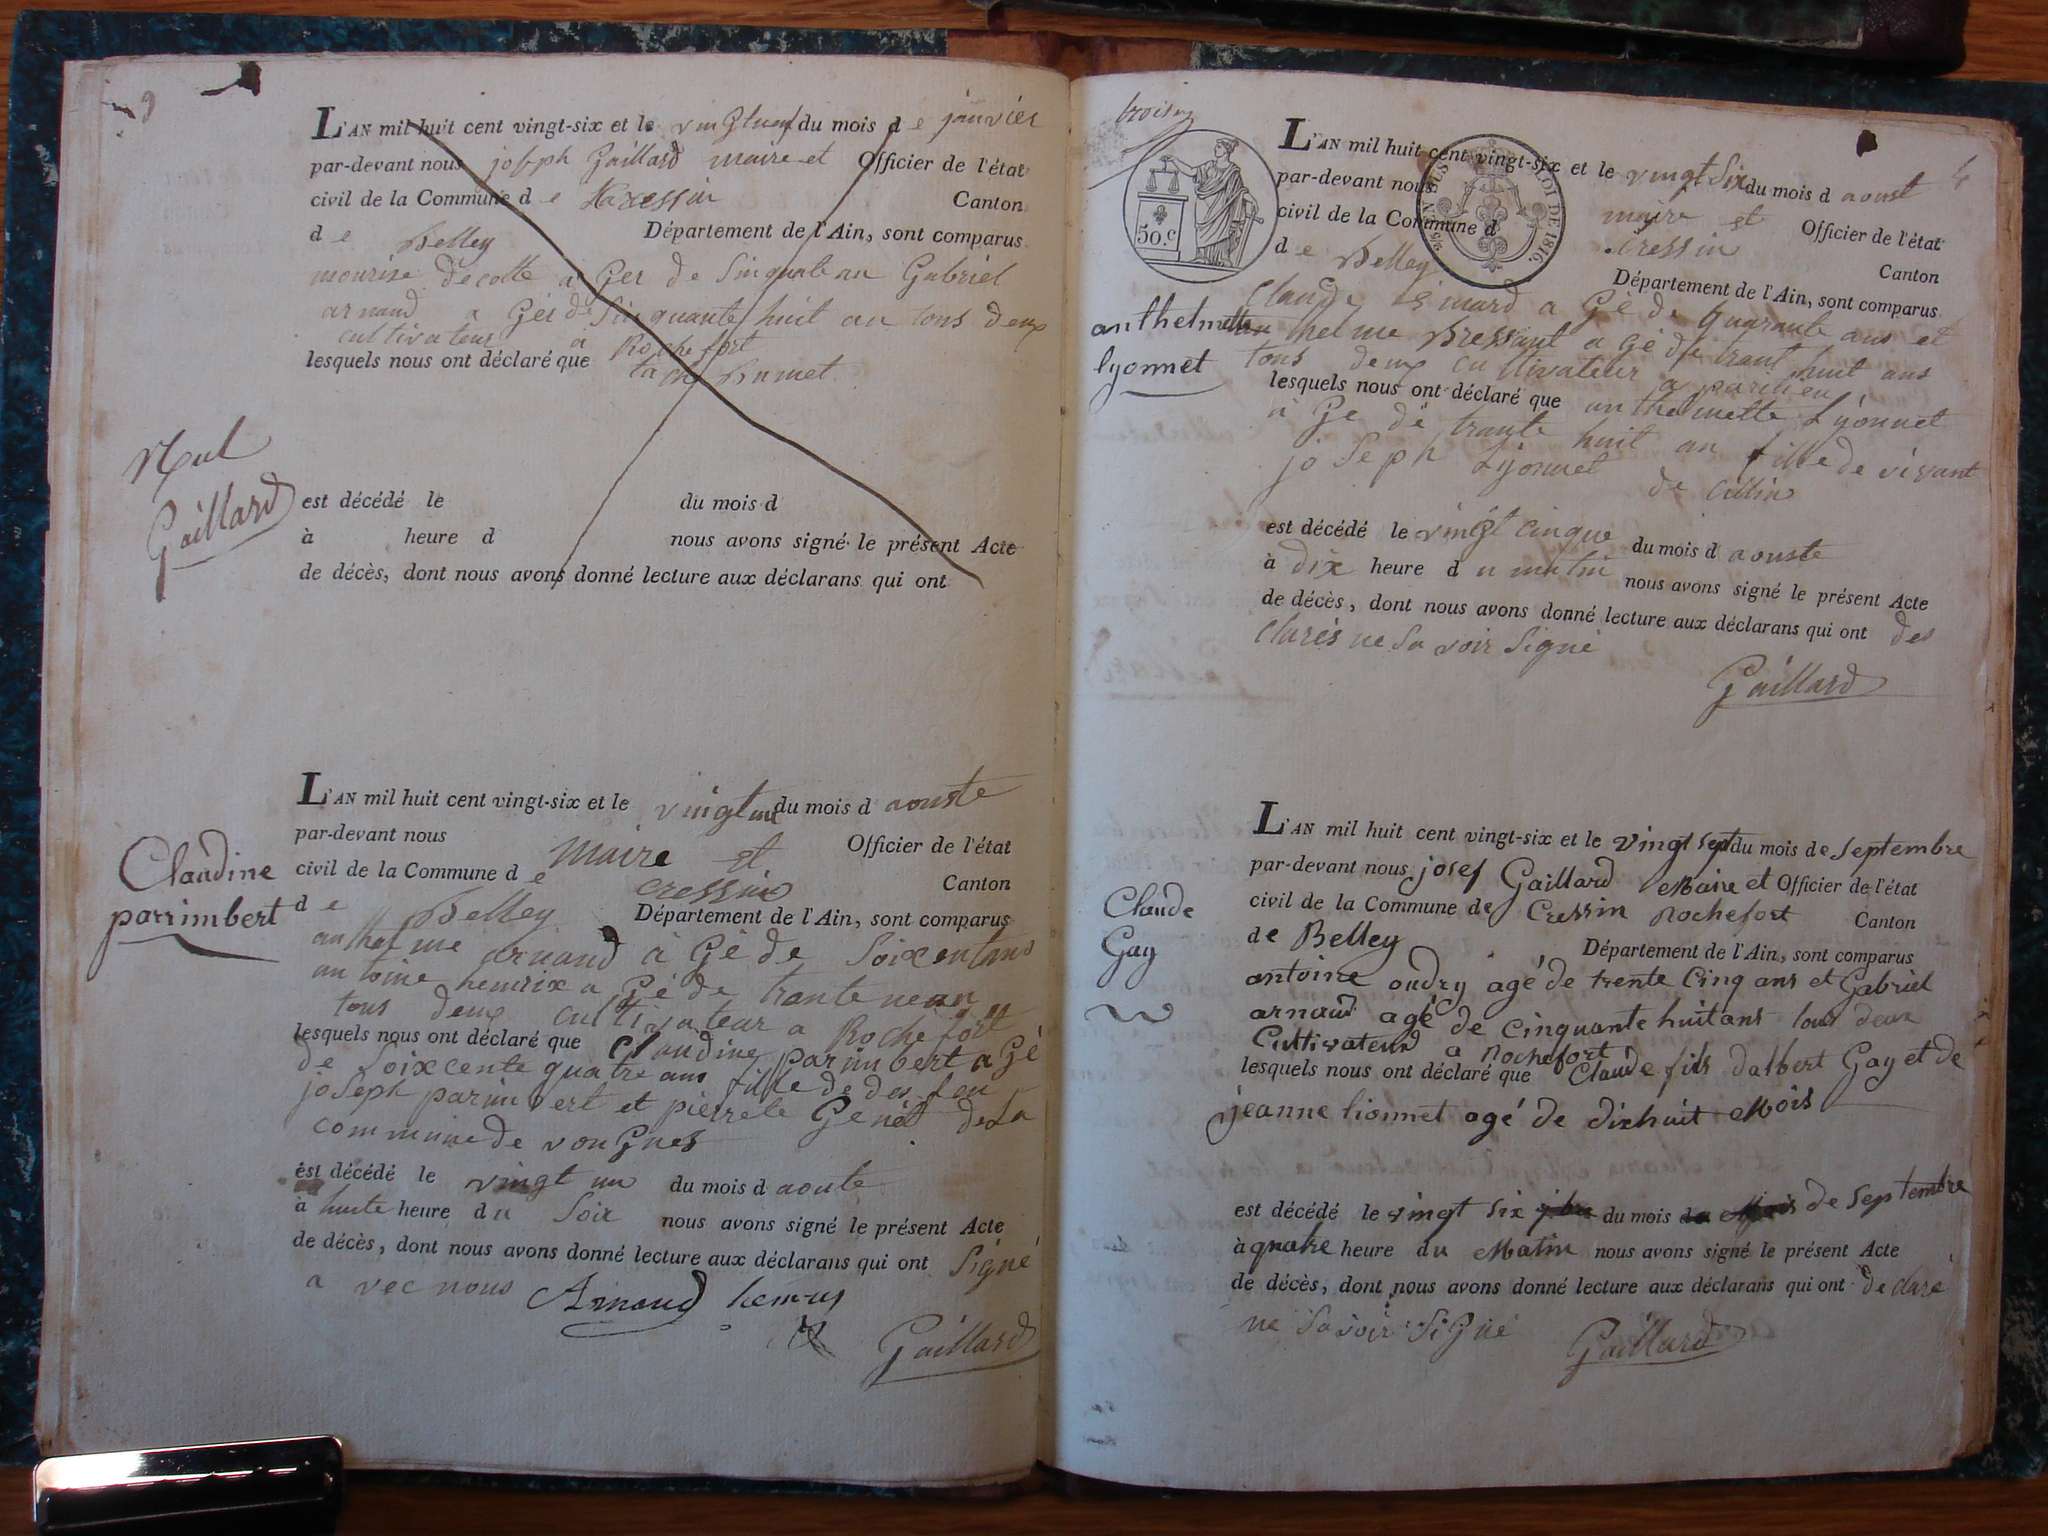 L'AN mil huit cent vingt-six et le du mois de janvier
par-devant nous joseph Gaillard maire et Officier de l'état
civil de la Commune de Canton
de Belley Département de l'Ain, sont comparus
a Ger de Sinquate an Gabriel
arnaud a Ger de Sinquante huit an tous deux
cultivateur a Rochefort
lesquels nous ont déclaré que
Nul
Gaillard
est décédé le du mois d
à heure d nous avons signé le présent Acte
de décès, dont nous avons donné lecture aux déclarans qui ont
L'AN mil huit cent vingt-six et le vingt un du mois d aouste
par-devant nous Officier de l'état
civil de la Commune de maire et cressin Canton
de Belley Département de l'Ain, sont comparus
Claudine
parrimbert
anthelme arnaud à Gé de Soixentans
antoine henrix a Gé de trante
tous deux cultivateur a Rochefort
lesquels nous ont déclaré que Claudine parimbert a Gé
de Soixcente quatre ans fille de des feu
joseph parimbert et pierrete Genêt de la
commune de vongnes
est décédé le vingt un du mois d aoute
à huite heure du Soir nous avons signé le présent Acte
de décès, dont nous avons donné lecture aux déclarans qui ont Signé
a vec nous Arnaud
Gaillard
4
50. C
LOI DE 1816.
L'AN mil huit cent vingt-six et le vingt Six du mois d aoust
par-devant nous maire et Officier de l'état
civil de la Commune d cressin Canton
de Belley Département de l'Ain, sont comparus
anthelmette
lyonnet
Claude a Gé de quarante ans et
anthelme Bressant a Gé de trant huit ans
tous deux cultivateur a
lesquels nous ont déclaré que anthelmette Lyonnet
à Ge de trante huit an fille de vivant
joseph Lyonnet de
est décédé le vingt cinque du mois d aouste
à dix heure du matin nous avons signé le présent Acte
de décès, dont nous avons donné lecture aux déclarans qui ont des
clarés ne Sa voir Signé
Gaillard
L'AN mil huit cent vingt-six et le vingt sept du mois de septembre
par-devant nous josef Gaillard Maire et Officier de l'état
civil de la Commune de Cressin Rochefort Canton
de Belley Département de l'Ain, sont comparus
Claude
Gay
antoine oudry agé de trente Cinq ans et Gabriel
arnaud agé de cinquante huit ans tous deux
Cultivateurs a Rochefort
lesquels nous ont déclaré que Claude fils dalbert Gay et de
jeanne lionnet agé de dixhuit Mois
est décédé le vingt six du mois de septembre
à quatre heure du Matin nous avons signé le présent Acte
de décès, dont nous avons donné lecture aux déclarans qui ont declaré
ne Savoir SiGné
Gaillard